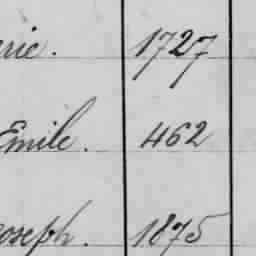 erie. 1727
Emile. 462
oseph. 1875